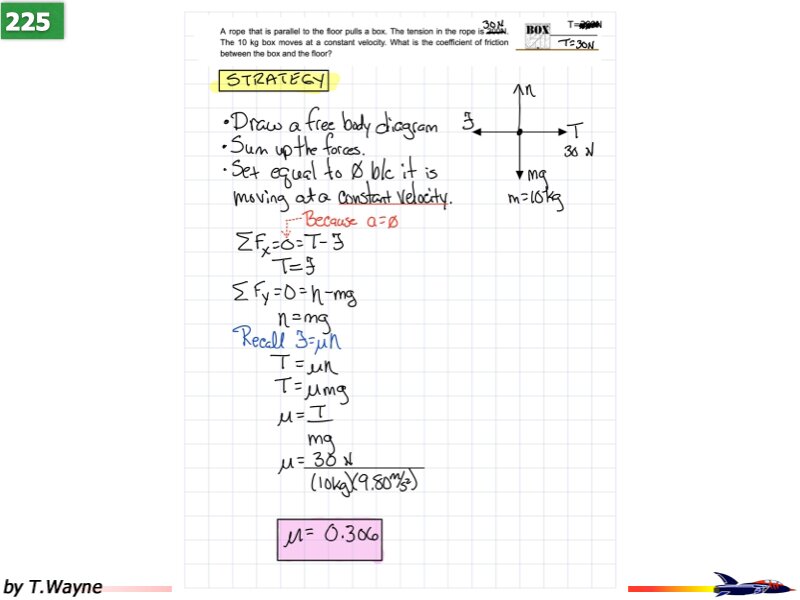 225
A rope that is parallel to the floor pulls a box. The tension in the rope is 30N
The 10 kg box moves at a constant velocity. What is the coefficient of friction
between the box and the floor?
BOX
T=
T=30N
STRATEGY
•Draw a free body diagram
•Sum up the forces.
•Set equal to Ø b/c it is
moving at a constant velocity.
Because a=Ø
ΣFx=0=T-F
T=F
ΣFy=0=n-mg
n=mg
Recall F=μn
T=μn
T=μmg
μ=T/mg
μ=30 N/(10kg)(9.80m/s²)
μ= 0.306
n
F
T
30 N
mg
m=10kg
by T.Wayne